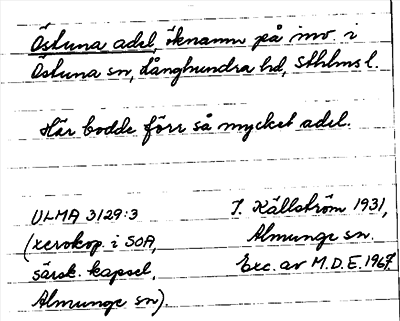 Östuna adel, öknamn på inv. i
Östuna sn, Långhundra hd, Sthlms l.
Här bodde förr så mycket adel.
ULMA 3129:3
(xerokop. i SOA,
särsk. kapsel,
Almunge sn).
I. Källström 1931,
Almunge sn.
Exc. av M.D.E. 1967.